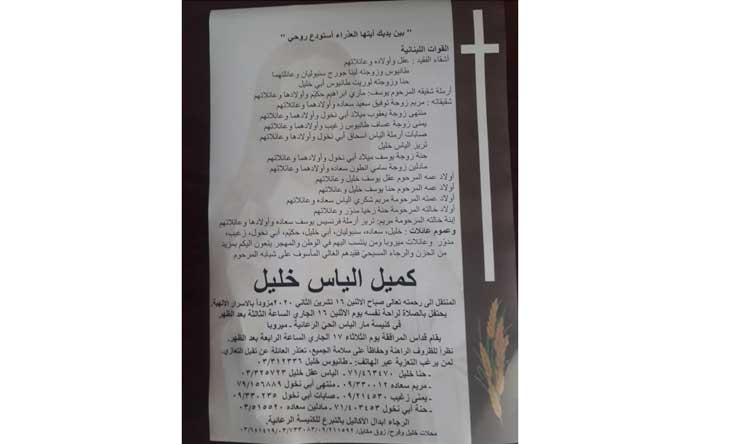 " بين يديك أيتها العذراء أستودع روحي "
القوات اللبنانية
أشقاء الفقيد : عقل وأولاده وعائلاتهم
طانيوس وزوجته لينا جورج سنبوليان وعائلتهما
حنا وزوجته لوريت طانيوس أبي خليل
أرملة شقيقه المرحوم يوسف: ماري ابراهيم حكيّم وأولادها وعائلاتهم
شقيقاته : مريم زوجة توفيق سعيد سعاده وأولادهما وعائلاتهم
منتهى زوجة يعقوب ميلاد أبي نخول وأولادهما وعائلاتهم
يمنى زوجة عساف طانيوس زغيب وأولادهما وعائلاتهم
صابات أرملة الياس اسحاق أبي نخول وأولادها وعائلاتهم
تريز الياس خليل
حنة زوجة يوسف ميلاد أبي نخول وأولادهما وعائلاتهم
مادلين زوجة سامي انطون سعاده وأولادهما وعائلاتهم
أولاد عمه المرحوم عقل يوسف خليل وعائلاتهم
أولاد عمه المرحوم حنا يوسف خليل وعائلاتهم
أولاد عمته المرحومة مريم شكري الياس سعاده وعائلاتهم
أولاد خالته المرحومة حنة زخيا مدوّر وعائلاتهم
إبنة خالته المرحومة مريم: تريز أرملة فرنسيس يوسف سعاده وأولادها وعائلاتهم
وعموم عائلات : خليل، سعاده، سنبوليان، أبي خليل، حكيّم، أبي نخول، زغيب،
مدوّر وعائلات ميروبا ومن ينتسب اليهم في الوطن والمهجر ينعون اليكم بمزيد
من الحزن والرجاء المسيحيّ فقيدهم الغالي المأسوف على شبابه المرحوم
كميل الياس خليل
المنتقل الى رحمته تعالى صباح الاثنين ١٦ تشرين الثاني ٢٠٢٠ مزوداً بالاسرار الالهية.
يحتفل بالصلاة لراحة نفسه يوم الاثنين ١٦ الجاري الساعة الثالثة بعد الظهر
في كنيسة مار الياس الحيّ الرعائية ـ ميروبا
يقام قداس المرافقة يوم الثلاثاء ١٧ الجاري الساعة الرابعة بعد الظهر.
نظراً للظروف الراهنة وحفاظاً على سلامة الجميع، تعتذر العائلة عن تقبل التعازي.
لمن يرغب التعزية عبر الهاتف: ـ طانيوس خليل ٠٣/٣١٢٣٣٦
ـ حنا خليل ٧١/٤٦٣٤٧٠ ـ الياس عقل خليل ٠٣/٣٢٥٧٢٣
ـ مريم سعاده ٠٩/٣٣٠٠١٢ ـ منتهى أبي نخول ٧٩/١٥٦٨٨٩
ـ يمنى زغيب ٠٩/٢١٤٥٣٠ ـ صابات أبي نخول ٠٩/٣٣٠٢٣٥
ـ حنة أبي نخول ٧١/٤٠٣٤٥٣ ـ مادلين سعاده ٠٣/٥١٥٥٢٠
الرجاء ابدال الأكاليل بالتبرع للكنيسة الرعائية.
محلات خليل وفرح: زوق مكايل: